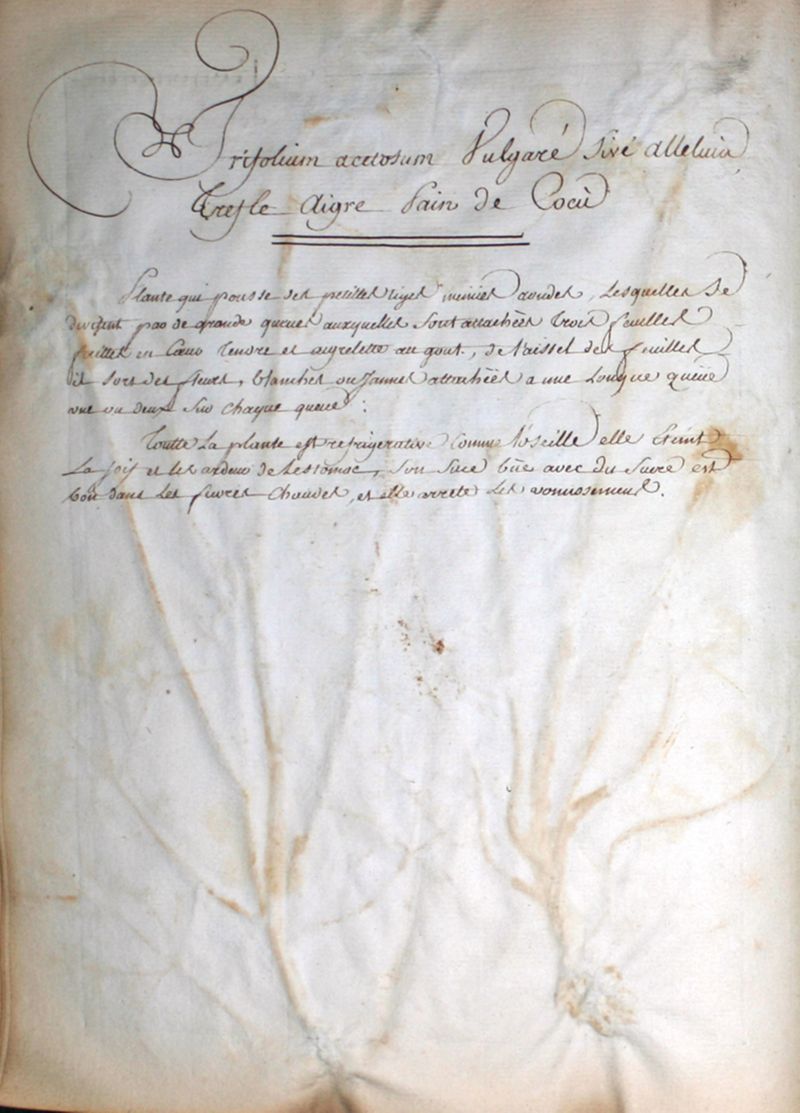 Trifolium acetosum Vulgaré Sivé alleluia
Trefle Aigre Pain de Cocù
Plante qui pousse ses petittes tiges menues rondes, Lesquelles Se
divisent par de grande queues auxquelles Sont attachées Trois feuilles
faittes en Cœur Tendre et aigrelette au gout, de L'aissel des feuilles
il sort des fleurs, blanches ou Jaunes attachéés a une Longue queüe
une ou deux Sur Chaque queue :
Toutte La plante est refrigerative Comme L'oseille elle Eteint
La soif et les ardeur de Lestomac, Son Suc büe avec du Sucre est
bon dans Les fievres Chaudes, et elle arrete Les vomissement.